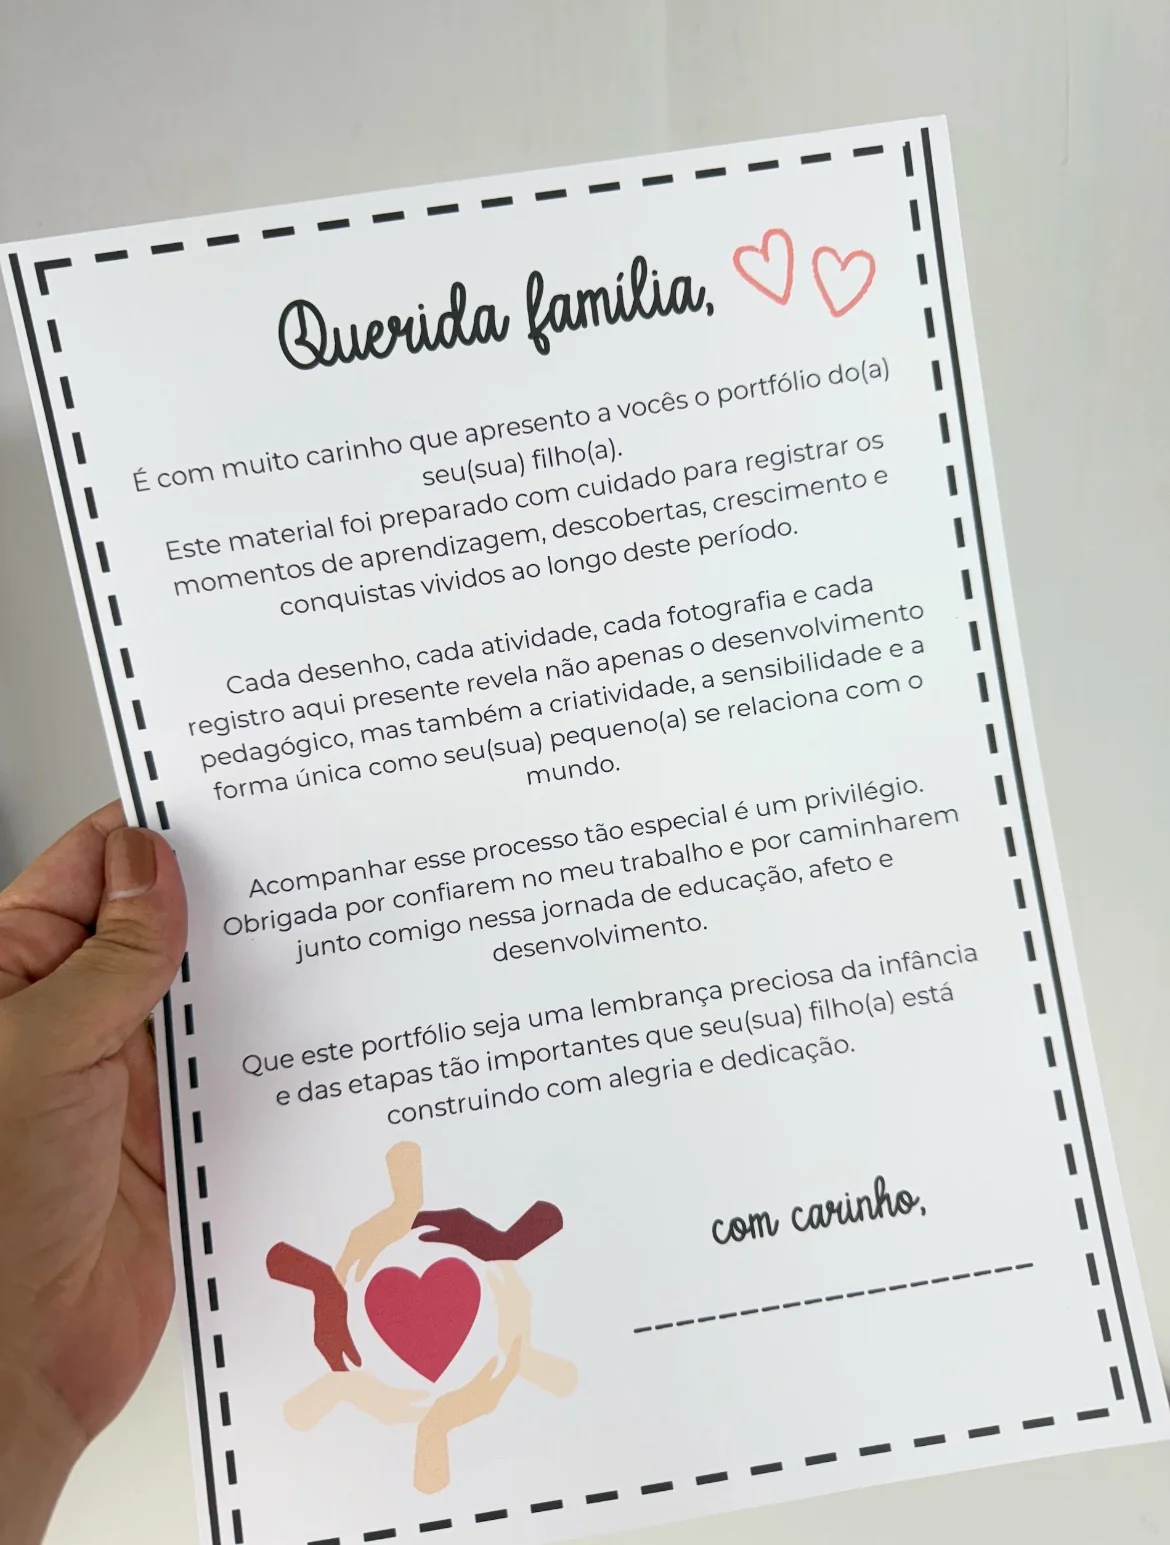 Querida família,
É com muito carinho que apresento a vocês o portfólio do(a)
seu(sua) filho(a).
Este material foi preparado com cuidado para registrar os
momentos de aprendizagem, descobertas, crescimento e
conquistas vividos ao longo deste período.
Cada desenho, cada atividade, cada fotografia e cada
registro aqui presente revela não apenas o desenvolvimento
pedagógico, mas também a criatividade, a sensibilidade e a
forma única como seu(sua) pequeno(a) se relaciona com o
mundo.
Acompanhar esse processo tão especial é um privilégio.
Obrigada por confiarem no meu trabalho e por caminharem
junto comigo nessa jornada de educação, afeto e
desenvolvimento.
Que este portfólio seja uma lembrança preciosa da infância
e das etapas tão importantes que seu(sua) filho(a) está
construindo com alegria e dedicação.
com carinho,